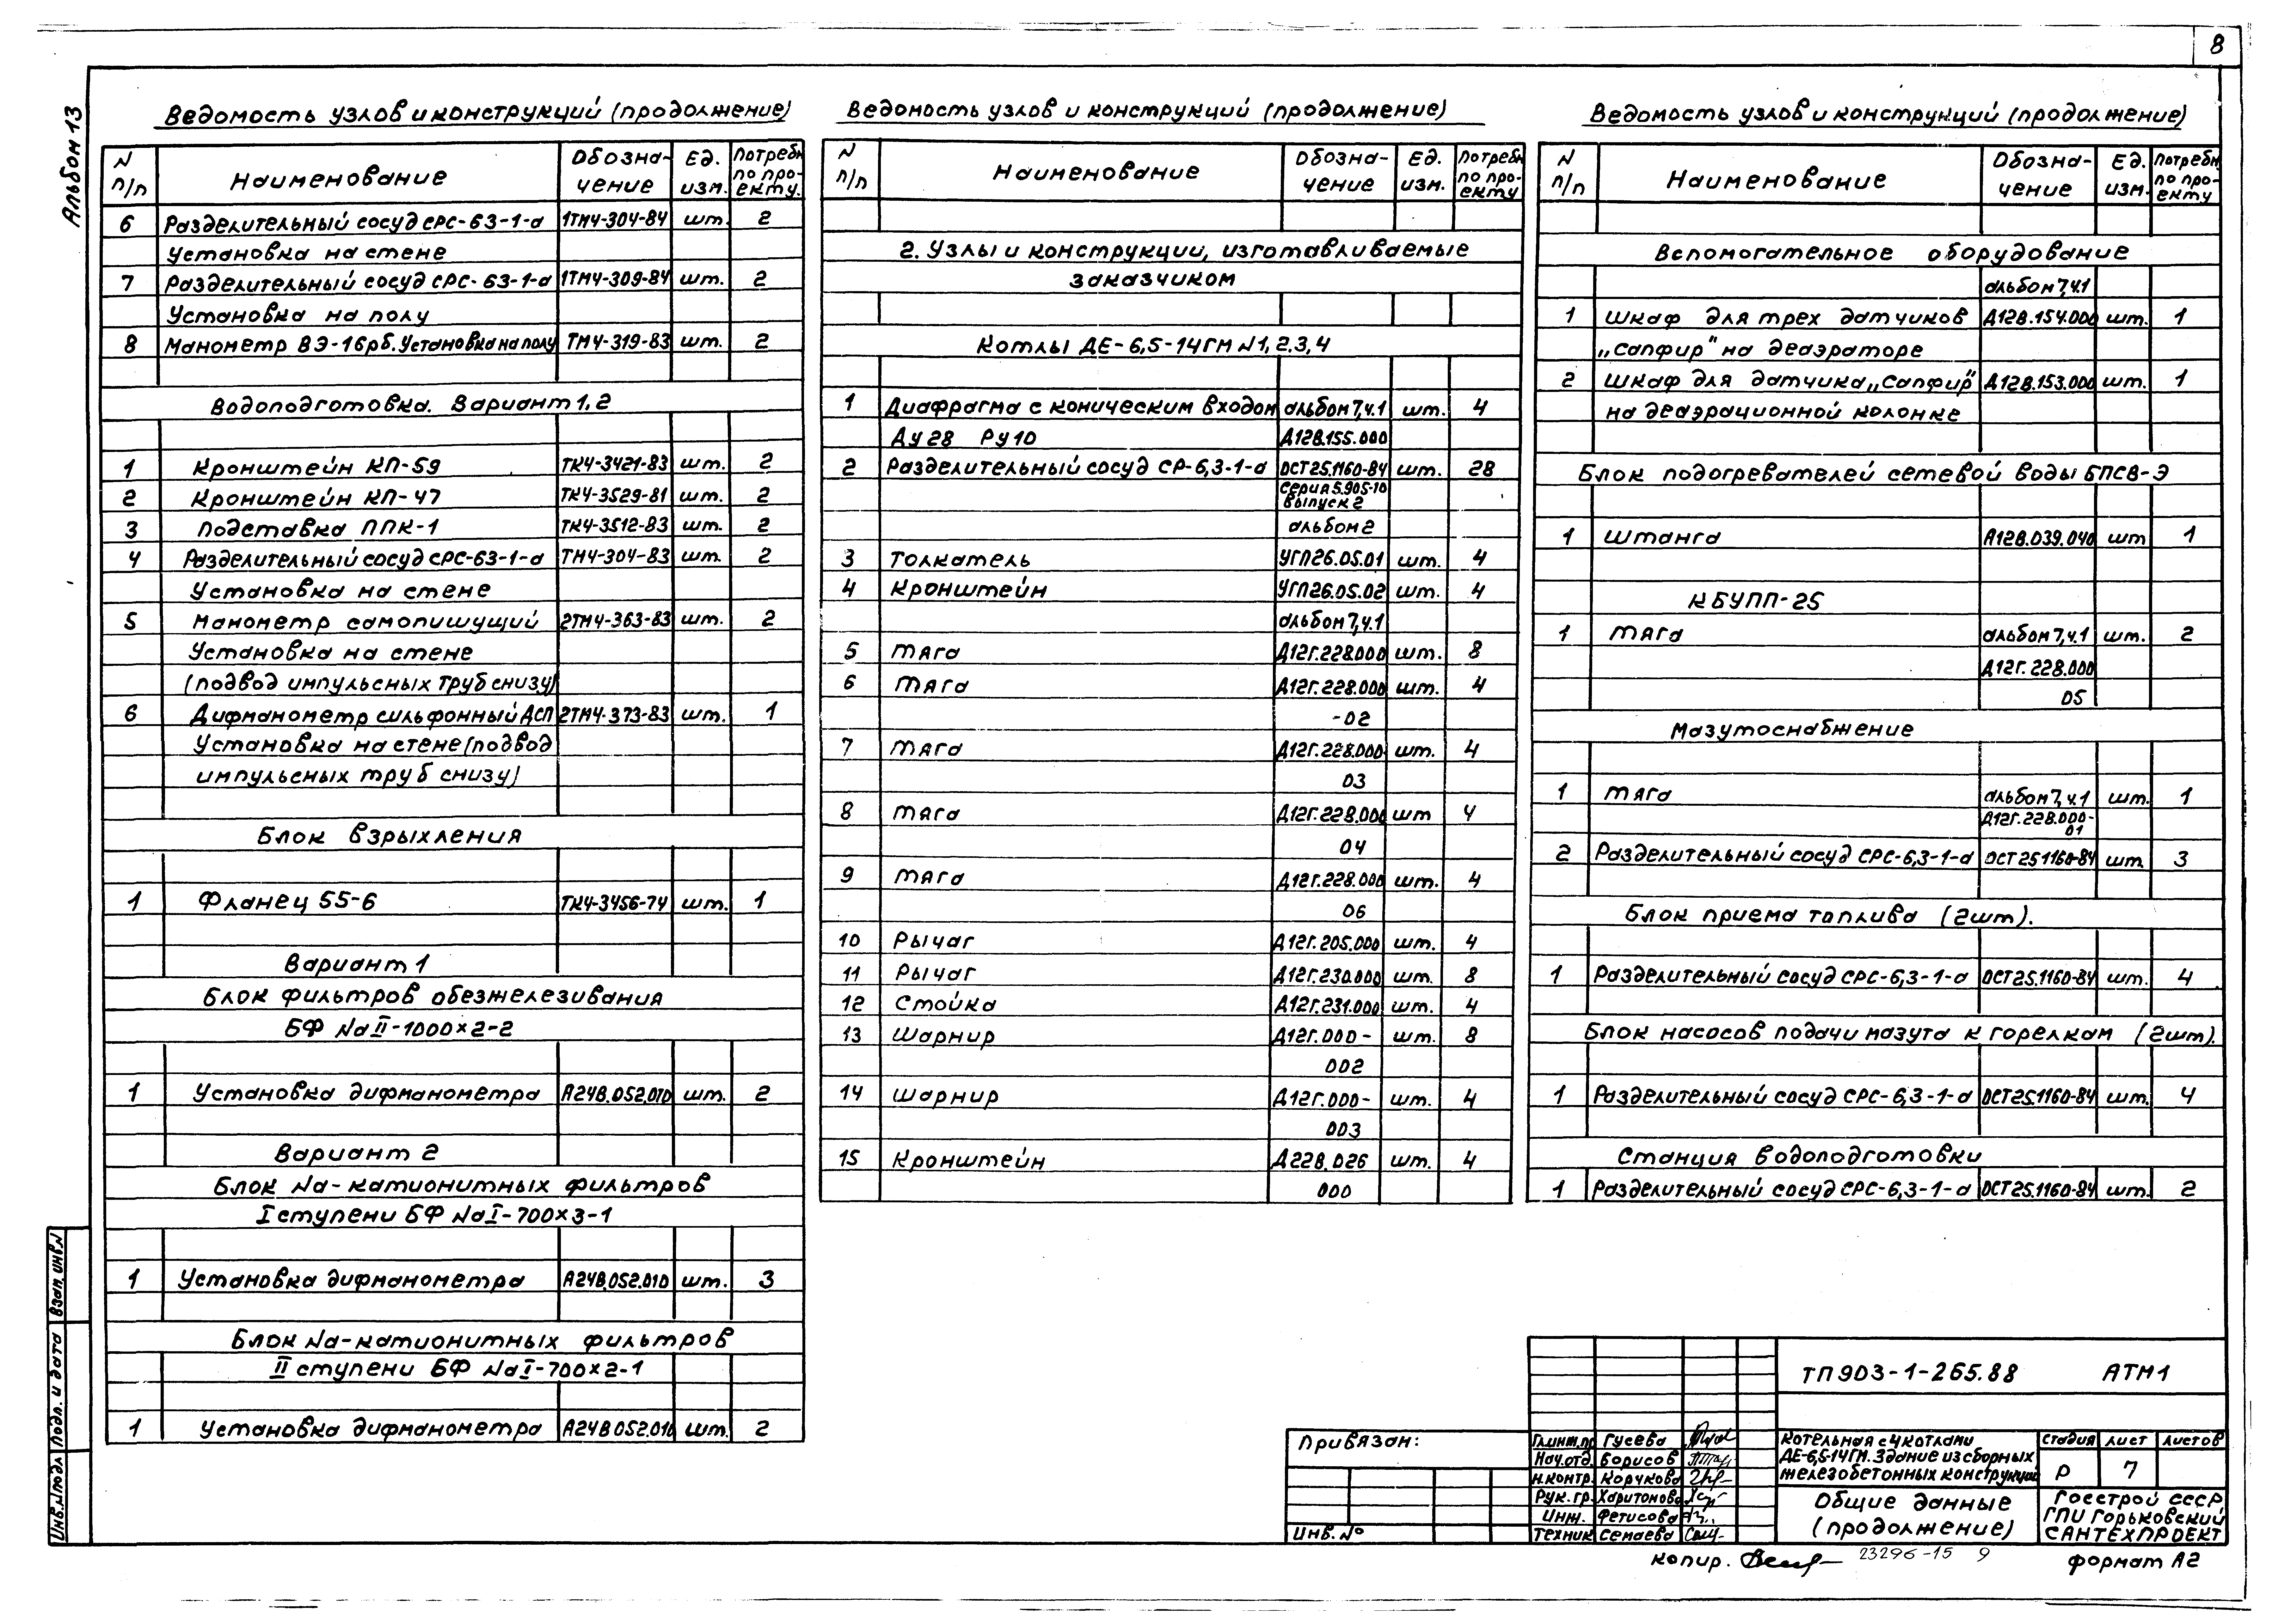 8
Альбом 13
Ведомость узлов и конструкций (продолжение)
N п/п Наименование Обозначение Ед. изм. Потребн. по проекту.
6 Разделительный сосуд СРС-63-1-а 1ТМ4-304-84 шт. 2
Установка на стене
7 Разделительный сосуд СРС-63-1-а 1ТМ4-309-84 шт. 2
Установка на полу
8 Манометр ВЭ-16рб. Установка на полу ТМ4-319-83 шт. 2
Водоподготовка. Вариант 1,2
1 Кронштейн КП-59 ТК4-3421-83 шт. 2
2 Кронштейн КП-47 ТК4-3529-81 шт. 2
3 Подставка ППК-1 ТК4-3512-83 шт. 2
4 Разделительный сосуд СРС-63-1-а ТМ4-304-83 шт. 2
Установка на стене
5 Манометр самопишущий 2ТМ4-363-83 шт. 2
Установка на стене
(подвод импульсных труб снизу)
6 Дифманометр сильфонный ДСП 2ТМ4-373-83 шт. 1
Установка на стене (подвод
импульсных труб снизу)
Блок взрыхления
1 Фланец 55-6 ТК4-3456-74 шт. 1
Вариант 1
Блок фильтров обезжелезивания
БФ Na II-1000×2-2
1 Установка дифманометра А24В.052.010 шт. 2
Вариант 2
Блок Na-катионитных фильтров
I ступени БФ Na I-700×3-1
1 Установка дифманометра А24В.052.010 шт. 3
Блок Na-катионитных фильтров
II ступени БФ Na I-700×2-1
1 Установка дифманометра А24В052.010 шт. 2
Ведомость узлов и конструкций (продолжение)
N п/п Наименование Обозначение Ед. изм. Потребн. по проекту
2. Узлы и конструкции, изготавливаемые
заказчиком
Котлы ДЕ-6,5-14ГМ N1,2,3,4
1 Диафрагма с коническим входом альбом 7,ч.1 шт. 4
Ду 28 Ру 10 Д12В.155.000
2 Разделительный сосуд СР-6,3-1-а ОСТ25.1160-84 шт. 28
Серия 5.905-10
Выпуск 2
альбом 2
3 Толкатель УГП26.05.01 шт. 4
4 Кронштейн УГП26.05.02 шт. 4
альбом 7,ч.1
5 Тяга Д12Г.228.000 шт. 8
6 Тяга Д12Г.228.000 шт. 4
-02
7 Тяга Д12Г.228.000 шт. 4
03
8 Тяга Д12Г.228.000 шт 4
04
9 Тяга Д12Г.228.000 шт. 4
06
10 Рычаг Д12Г.205.000 шт. 4
11 Рычаг Д12Г.230.000 шт. 8
12 Стойка Д12Г.231.000 шт. 4
13 Шарнир Д12Г.000- шт. 8
002
14 Шарнир Д12Г.000- шт. 4
003
15 Кронштейн Д228.026 шт. 4
000
Ведомость узлов и конструкций (продолжение)
N п/п Наименование Обозначение Ед. изм. Потребн по проекту
Вспомогательное оборудование
альбом 7,ч.1
1 Шкаф для трех датчиков Д12В.154.000 шт. 1
„Сапфир" на деаэраторе
2 Шкаф для датчика „Сапфир" Д12В.153.000 шт. 1
на деаэрационной колонке
Блок подогревателей сетевой воды БПСВ-Э
1 Штанга А12В.039.040 шт 1
КБУПП-25
1 Тяга альбом 7,ч.1 шт. 2
Д12Г.228.000
05
Мазутоснабжение
1 Тяга альбом 7,ч.1 шт. 1
Д12Г.228.000-
01
2 Разделительный сосуд СРС-6,3-1-а ОСТ 25 1160-84 шт 3
Блок приема топлива (2шт).
1 Разделительный сосуд СРС-6,3-1-а ОСТ25.1160-84 шт. 4
Блок насосов подачи мазута к горелкам (2шт).
1 Разделительный сосуд СРС-6,3-1-а ОСТ25.1160-84 шт. 4
Станция водоподготовки
1 Разделительный сосуд СРС-6,3-1-а ОСТ25.1160-84 шт. 2
Привязан:
Инв. №
ТП 903-1-265.88 АТМ1
Гл.инж.пр Гусева
Нач.отд. Борисов
Н.контр. Корчкова
Рук.гр. Харитонова
Инж. Фетисова
Техник Семаева
Котельная с 4 котлами
ДЕ-6,5-14ГМ. Здание из сборных
железобетонных конструкций
Стадия Лист Листов
Р 7
Общие данные
(продолжение)
Госстрой СССР
ГПИ Горьковский
САНТЕХПРОЕКТ
Копир. 23296-15 9 Формат А2
Инв.N подл Подп. и дата Взам. инв.N